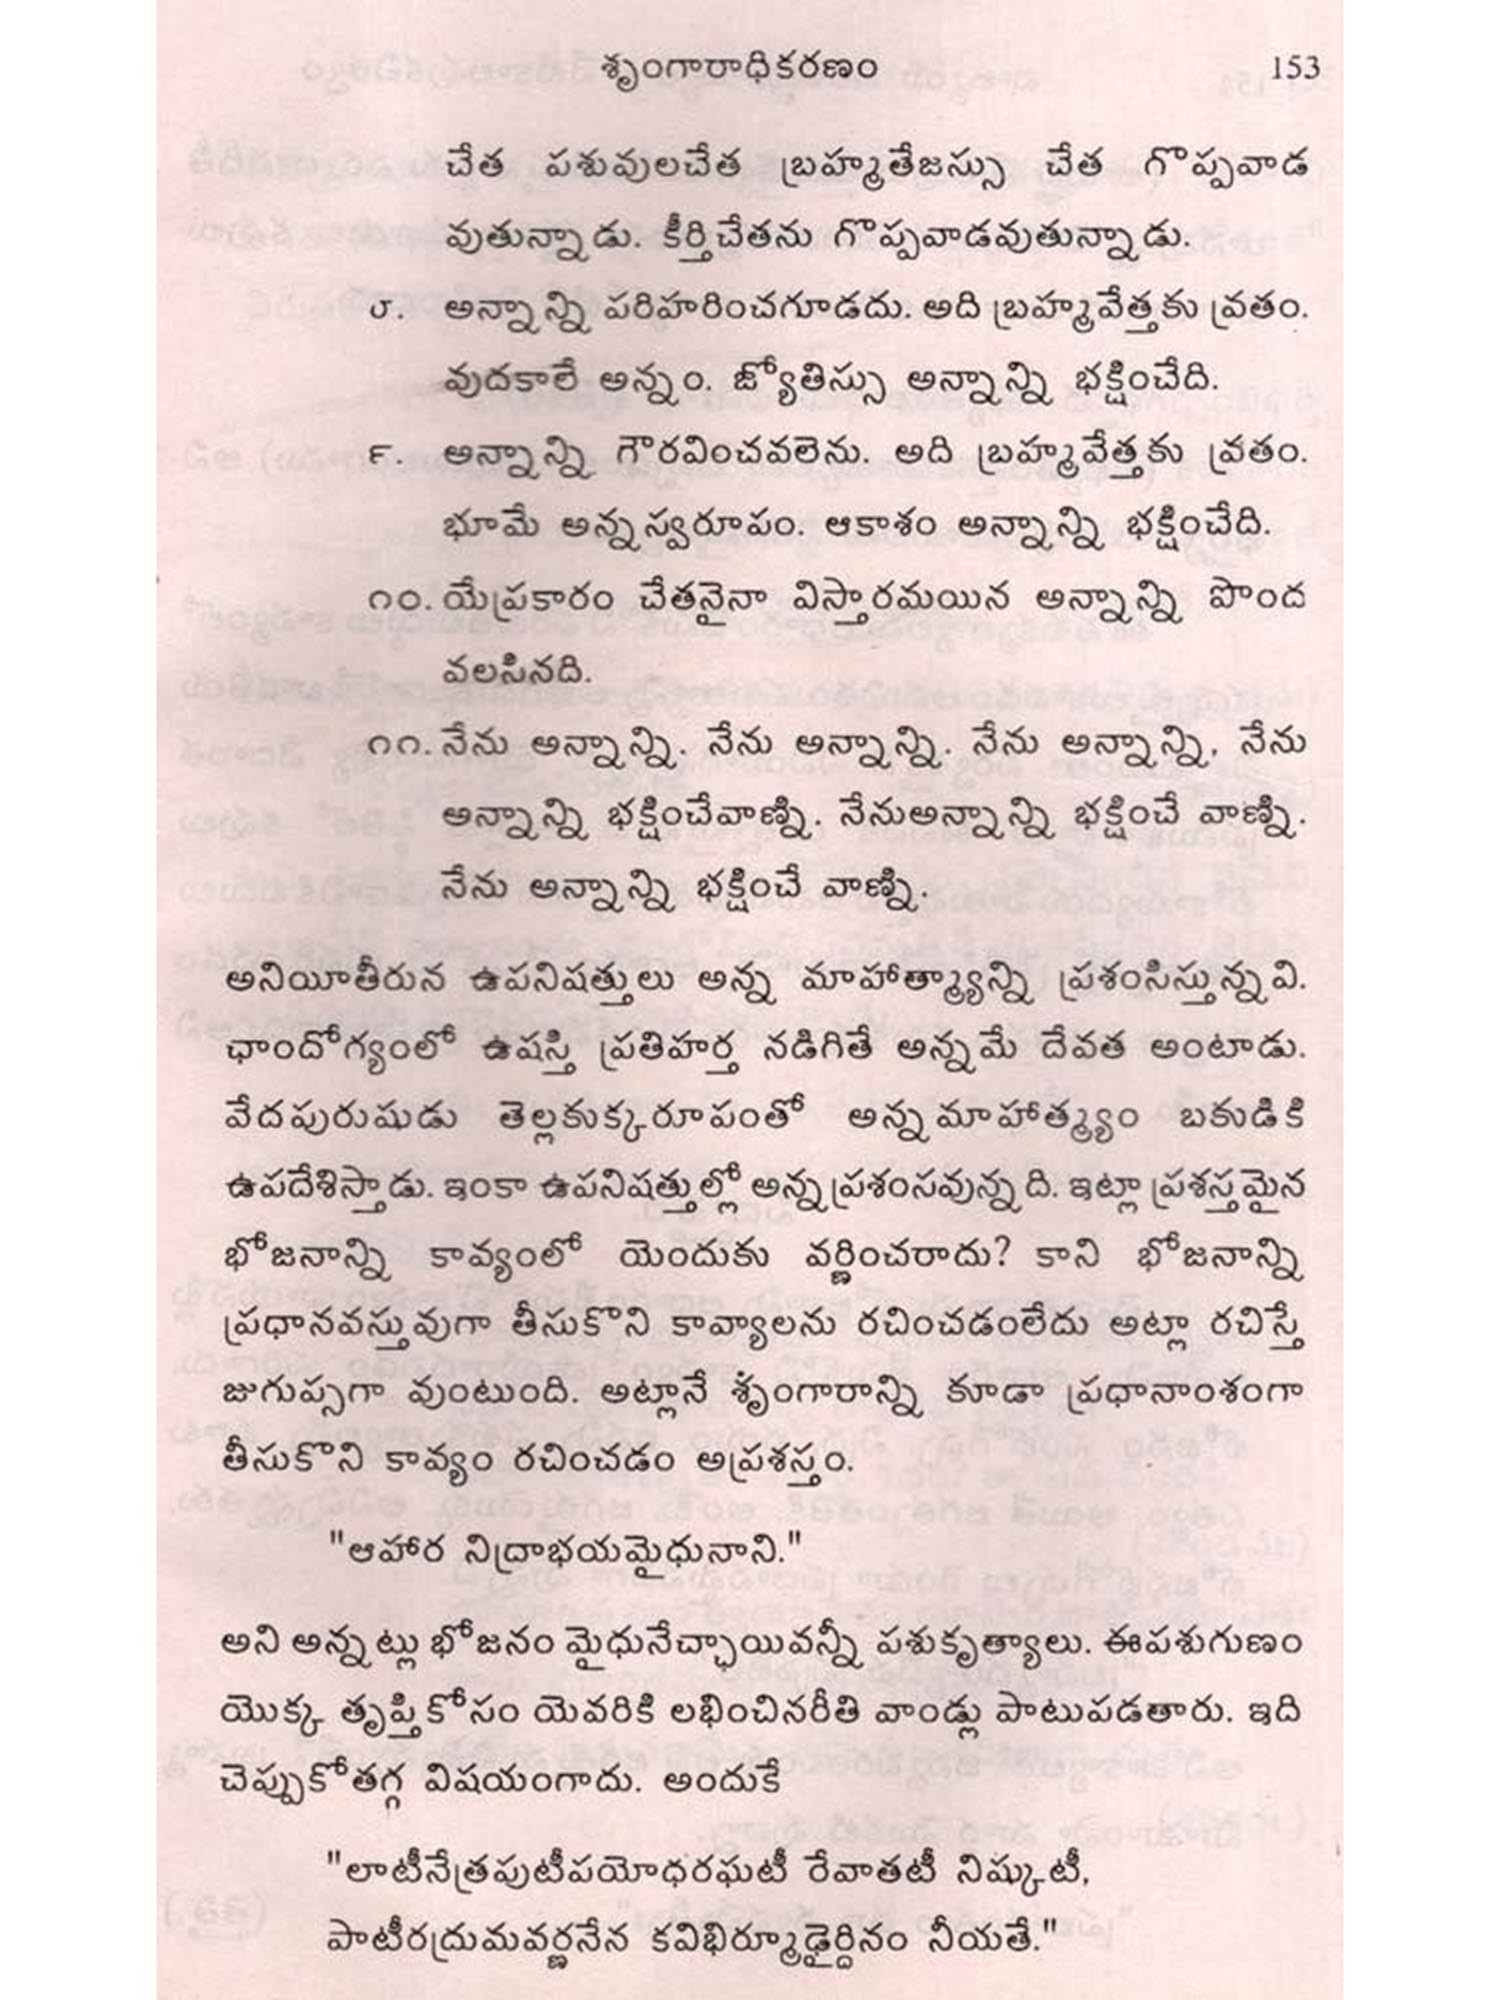 శృంగారాధికరణం 153
చేత పశువులచేత బ్రహ్మతేజస్సు చేత గొప్పవాడ
వుతున్నాడు. కీర్తిచేతను గొప్పవాడవుతున్నాడు.
౮. అన్నాన్ని పరిహరించగూడదు. అది బ్రహ్మవేత్తకు వ్రతం.
వుదకాలే అన్నం. జ్యోతిస్సు అన్నాన్ని భక్షించేది.
౯. అన్నాన్ని గౌరవించవలెను. అది బ్రహ్మవేత్తకు వ్రతం.
భూమే అన్నస్వరూపం. ఆకాశం అన్నాన్ని భక్షించేది.
౧౦. యేప్రకారం చేతనైనా విస్తారమయిన అన్నాన్ని పొంద
వలసినది.
౧౧. నేను అన్నాన్ని. నేను అన్నాన్ని. నేను అన్నాన్ని, నేను
అన్నాన్ని భక్షించేవాణ్ని. నేనుఅన్నాన్ని భక్షించే వాణ్ని.
నేను అన్నాన్ని భక్షించే వాణ్ని.
అనియీతీరున ఉపనిషత్తులు అన్న మాహాత్మ్యాన్ని ప్రశంసిస్తున్నవి.
ఛాందోగ్యంలో ఉషస్తి ప్రతిహర్త నడిగితే అన్నమే దేవత అంటాడు.
వేదపురుషుడు తెల్లకుక్కరూపంతో అన్నమాహాత్మ్యం బకుడికి
ఉపదేశిస్తాడు. ఇంకా ఉపనిషత్తుల్లో అన్నప్రశంసవున్నది. ఇట్లా ప్రశస్తమైన
భోజనాన్ని కావ్యంలో యెందుకు వర్ణించరాదు? కాని భోజనాన్ని
ప్రధానవస్తువుగా తీసుకొని కావ్యాలను రచించడంలేదు అట్లా రచిస్తే
జుగుప్సగా వుంటుంది. అట్లానే శృంగారాన్ని కూడా ప్రధానాంశంగా
తీసుకొని కావ్యం రచించడం అప్రశస్తం.
"ఆహార నిద్రాభయమైధునాని."
అని అన్నట్లు భోజనం మైధునేచ్ఛాయివన్నీ పశుకృత్యాలు. ఈపశుగుణం
యొక్క తృప్తికోసం యెవరికి లభించినరీతి వాండ్లు పాటుపడతారు. ఇది
చెప్పుకోతగ్గ విషయంగాదు. అందుకే
"లాటీనేత్రపుటీపయోధరఘటీ రేవాతటీ నిష్కుటీ,
పాటీరద్రుమవర్ణనేన కవిభిర్మూఢైర్దినం నీయతే."